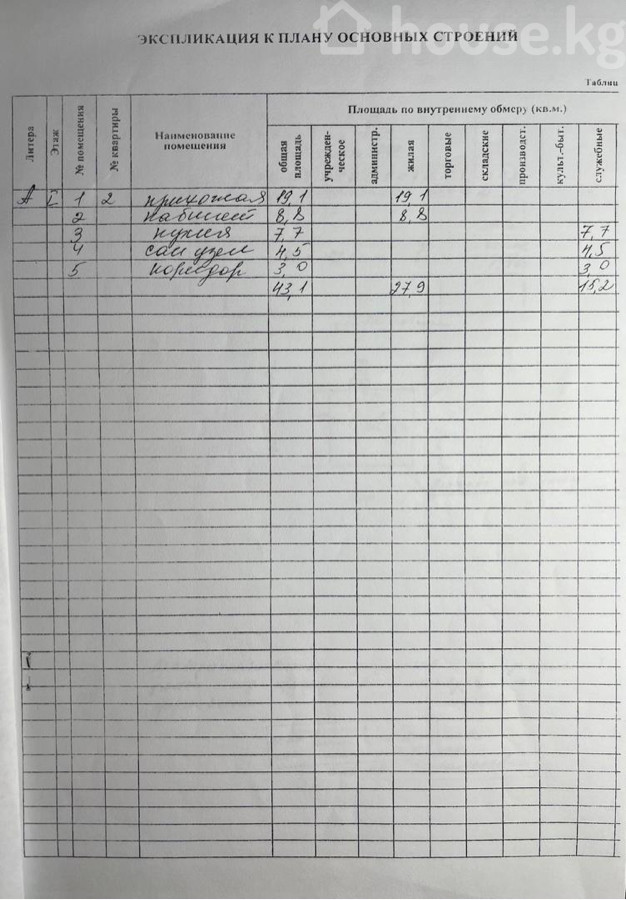 house.kg
ЭКСПЛИКАЦИЯ К ПЛАНУ ОСНОВНЫХ СТРОЕНИЙ
Таблиц
Литера Этаж № помещения № квартиры Наименование помещения Площадь по внутреннему обмеру (кв.м.)
общая площадь учрежден-ческое администр. жилая торговые складские производст. культ.-быт. служебные
А I 1 2 прихожая 19,1 19,1
2 кабинет 8,8 8,8
3 кухня 7,7 7,7
4 сан узел 4,5 4,5
5 коридор 3,0 3,0
43,1 27,9 15,2